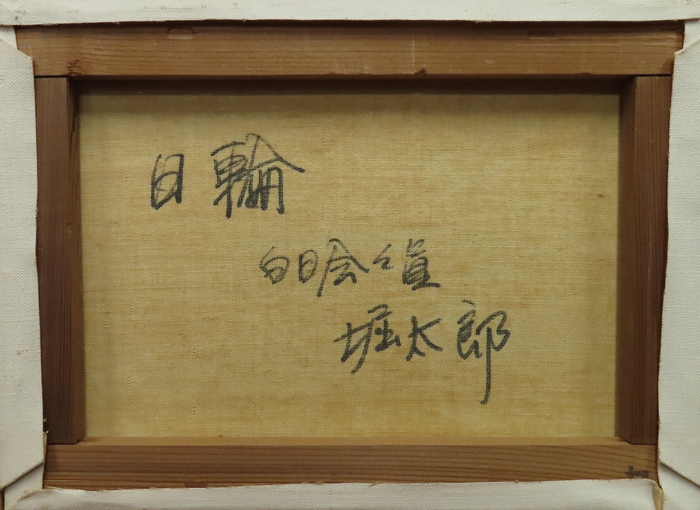 日輪
白日会々員
堀太郎